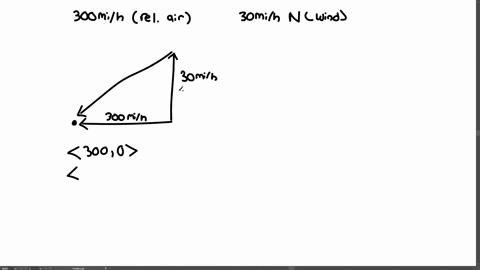 300mi/h (rel. air) 30mi/h N (wind)
30mi/h
300mi/h
<300,0>
<